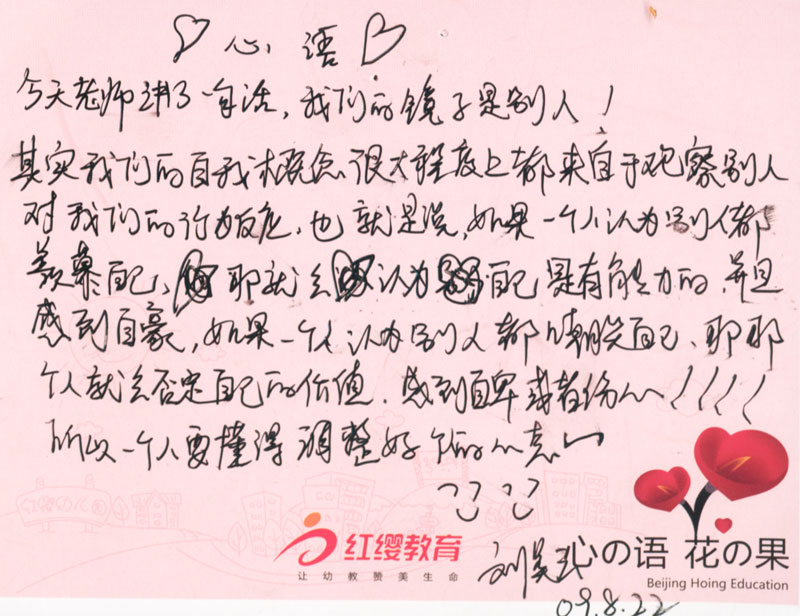 心语
今天老师讲了一句话，我们的镜子是别人！
其实我们的自我概念很大程度上都来自于观察别人
对我们的行为反应，也就是说，如果一个人认为别人都
羡慕自己，那就会认为自己是有能力的，并且
感到自豪，如果一个人认为别人都嘲笑自己，那那
个人就会否定自己的价值，感到自卑或者伤心！！！！
所以一个人要懂得调整好个的心态
红缨幼儿园
红缨教育
让幼教赞美生命
心の语 花の果
Beijing Hoing Education
09.8.22